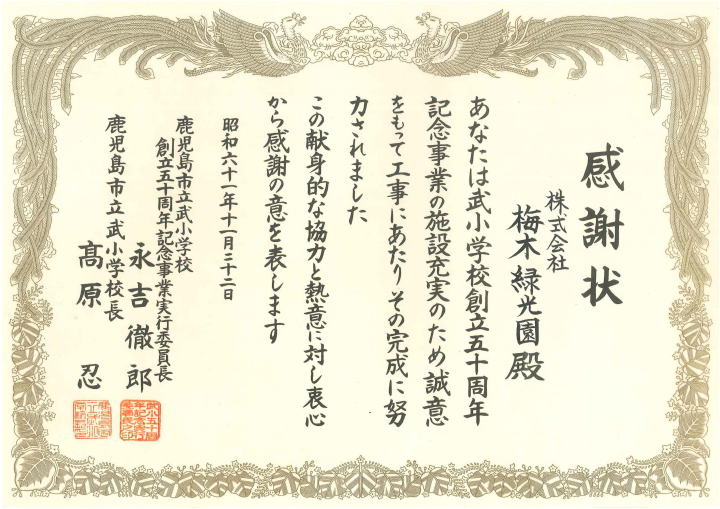 感謝状
株式会社
梅木緑光園殿
あなたは武小学校創立五十周年
記念事業の施設充実のため誠意
をもって工事にあたりその完成に努
力されました
この献身的な協力と熱意に対し衷心
から感謝の意を表します
昭和六十一年十一月二十二日
鹿児島市立武小学校
創立五十周年記念事業実行委員長
永吉徹郎
鹿児島市立武小学校長
髙原忍